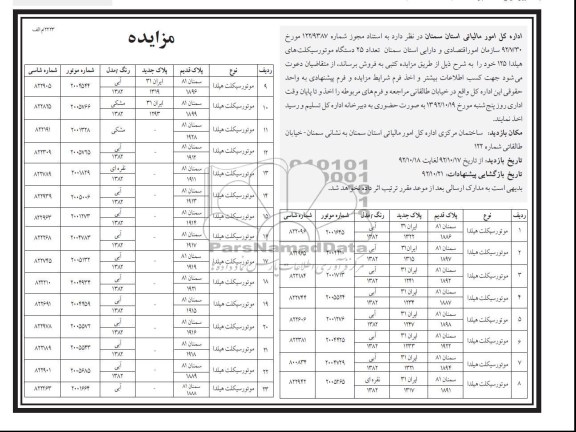 ۲۲۲۳/م الف
مزایده
اداره کل امور مالیاتی استان سمنان در نظر دارد به استناد مجوز شماره ۱۲۲/۹۳۸۷ مورخ
۹۲/۷/۳۰ سازمان امور اقتصادی و دارایی استان سمنان تعداد ۲۵ دستگاه موتورسیکلت‌های
هیلدا ۱۲۵ خود را به شرح ذیل از طریق مزایده کتبی به فروش برساند، از متقاضیان دعوت
می‌شود جهت کسب اطلاعات بیشتر و اخذ فرم شرایط مزایده و فرم پیشنهادی به واحد
حقوقی این اداره کل واقع در خیابان طالقانی مراجعه و فرم‌های مربوطه را اخذ و تا پایان وقت
اداری روز پنج‌شنبه مورخ ۱۳۹۲/۱۰/۱۹ به صورت حضوری به دبیرخانه اداره کل تسلیم و رسید
اخذ نمایند.
مکان بازدید: ساختمان مرکزی اداره کل امور مالیاتی استان سمنان به نشانی سمنان- خیابان
طالقانی شماره ۱۲۲
تاریخ بازدید: از تاریخ ۹۲/۱۰/۱۷ لغایت ۹۲/۱۰/۱۸
تاریخ بازگشایی پیشنهادات: ۹۲/۱۰/۲۱
بدیهی است به مدارک ارسالی بعد از موعد مقرر ترتیب اثر داده نخواهد شد.
ردیف نوع پلاک قدیم پلاک جدید رنگ /مدل شماره موتور شماره شاسی
۱ موتورسیکلت هیلدا سمنان ۸۱ ۱۸۸۶ ایران ۳۱ ۱۳۲۲ آبی ۱۳۸۲
۲ موتورسیکلت هیلدا سمنان ۸۱ ۱۸۹۷ ایران ۳۱ ۱۳۱۵ آبی ۱۳۸۲
۳ موتورسیکلت هیلدا سمنان ۸۱ ۱۸۹۲ ایران ۳۱ ۱۲۴۱ آبی ۱۳۸۲ ۲۰۰۱۷۱۳
۴ موتورسیکلت هیلدا سمنان ۸۱ ۱۸۸۷ ایران ۳۱ ۱۲۳۴ آبی ۱۳۸۲ ۲۰۰۵۵۳۴
۵ موتورسیکلت هیلدا سمنان ۸۱ ۱۸۹۸ ایران ۳۱ ۱۲۴۷ آبی ۱۳۸۲ ۲۰۰۱۲۷۶ ۸۲۲۶۰۶
۶ موتورسیکلت هیلدا سمنان ۸۱ ۱۹۲۲ ایران ۳۱ ۱۲۳۳ آبی ۱۳۸۲ ۲۰۰۴۹۲۵ ۸۲۲۳۸۱
۷ موتورسیکلت هیلدا سمنان ۸۱ ۱۸۹۴ ایران ۳۱ ۱۳۲۱ آبی ۱۳۸۲ ۲۰۰۴۷۲۹ ۸۰۰۸۳۴
۸ موتورسیکلت هیلدا سمنان ۸۱ ۱۸۹۱ ایران ۳۱ ۱۳۱۷ نقره ای ۱۳۸۲ ۲۰۰۵۲۶۵ ۸۲۲۹۴۲
ردیف نوع پلاک قدیم پلاک جدید رنگ /مدل شماره موتور شماره شاسی
۹ موتورسیکلت هیلدا سمنان ۸۱ ۱۸۹۶ ایران ۳۱ ۱۳۱۹ آبی ۱۳۸۲ ۲۰۰۹۵۴۴ ۸۲۲۹۰۵
۱۰ موتورسیکلت هیلدا سمنان ۸۱ ۱۸۹۹ ایران ۳۱ ۱۲۹۳ مشکی ۱۳۸۲ ۲۰۰۵۷۶۶ ۸۲۲۸۲۵
۱۱ موتورسیکلت هیلدا سمنان ۸۱ ۱۹۲۸ - مشکی ۲۰۰۱۳۲۸ ۸۲۲۱۹۱
۱۲ موتورسیکلت هیلدا سمنان ۸۱ ۱۹۱۲ - آبی ۱۳۸۲ ۲۰۰۵۷۹۵ ۸۲۲۳۰۹
۱۳ موتورسیکلت هیلدا سمنان ۸۱ ۱۹۱۱ - نقره ای ۱۳۸۲ ۲۰۰۱۸۲۹ ۸۲۲۷۸۹
۱۴ موتورسیکلت هیلدا سمنان ۸۱ ۱۹۲۳ - آبی ۱۳۸۲ ۲۰۰۵۰۰۶ ۸۲۲۹۳۹
۱۵ موتورسیکلت هیلدا سمنان ۸۱ ۱۹۱۴ - آبی ۱۳۸۲ ۲۰۰۱۲۷۳ ۸۲۲۹۶۳
۱۶ موتورسیکلت هیلدا سمنان ۸۱ ۱۹۱۷ - آبی ۱۳۸۲ ۲۰۰۴۷۸۳ ۸۲۲۲۶۸
۱۷ موتورسیکلت هیلدا سمنان ۸۱ ۱۹۱۹ - آبی ۱۳۸۲ ۲۰۰۵۱۳۲ ۸۲۲۷۴۵
۱۸ موتورسیکلت هیلدا سمنان ۸۱ ۱۹۲۱ - آبی ۱۳۸۲ ۲۰۰۴۹۳۴ ۸۲۲۲۱۰
۱۹ موتورسیکلت هیلدا سمنان ۸۱ ۱۹۱۵ - آبی ۱۳۸۲ ۲۰۰۴۹۵۹ ۸۲۲۶۹۱
۲۰ موتورسیکلت هیلدا سمنان ۸۱ ۱۹۱۶ - آبی ۱۳۸۲ ۲۰۰۵۵۷۲ ۸۲۲۹۷۸
۲۱ موتورسیکلت هیلدا سمنان ۸۱ ۱۹۱۸ - آبی ۱۳۸۲ ۲۰۰۵۵۴۳ ۸۲۲۱۸۹
۲۲ موتورسیکلت هیلدا سمنان ۸۱ ۱۸۸۹ - آبی ۱۳۸۲ ۲۰۰۵۶۸۵ ۸۲۲۹۰۱
۲۳ موتورسیکلت هیلدا سمنان ۸۱ ۱۸۸۸ - آبی ۲۰۰۱۶۶۴ ۸۲۲۲۶۳
ParsNamadData